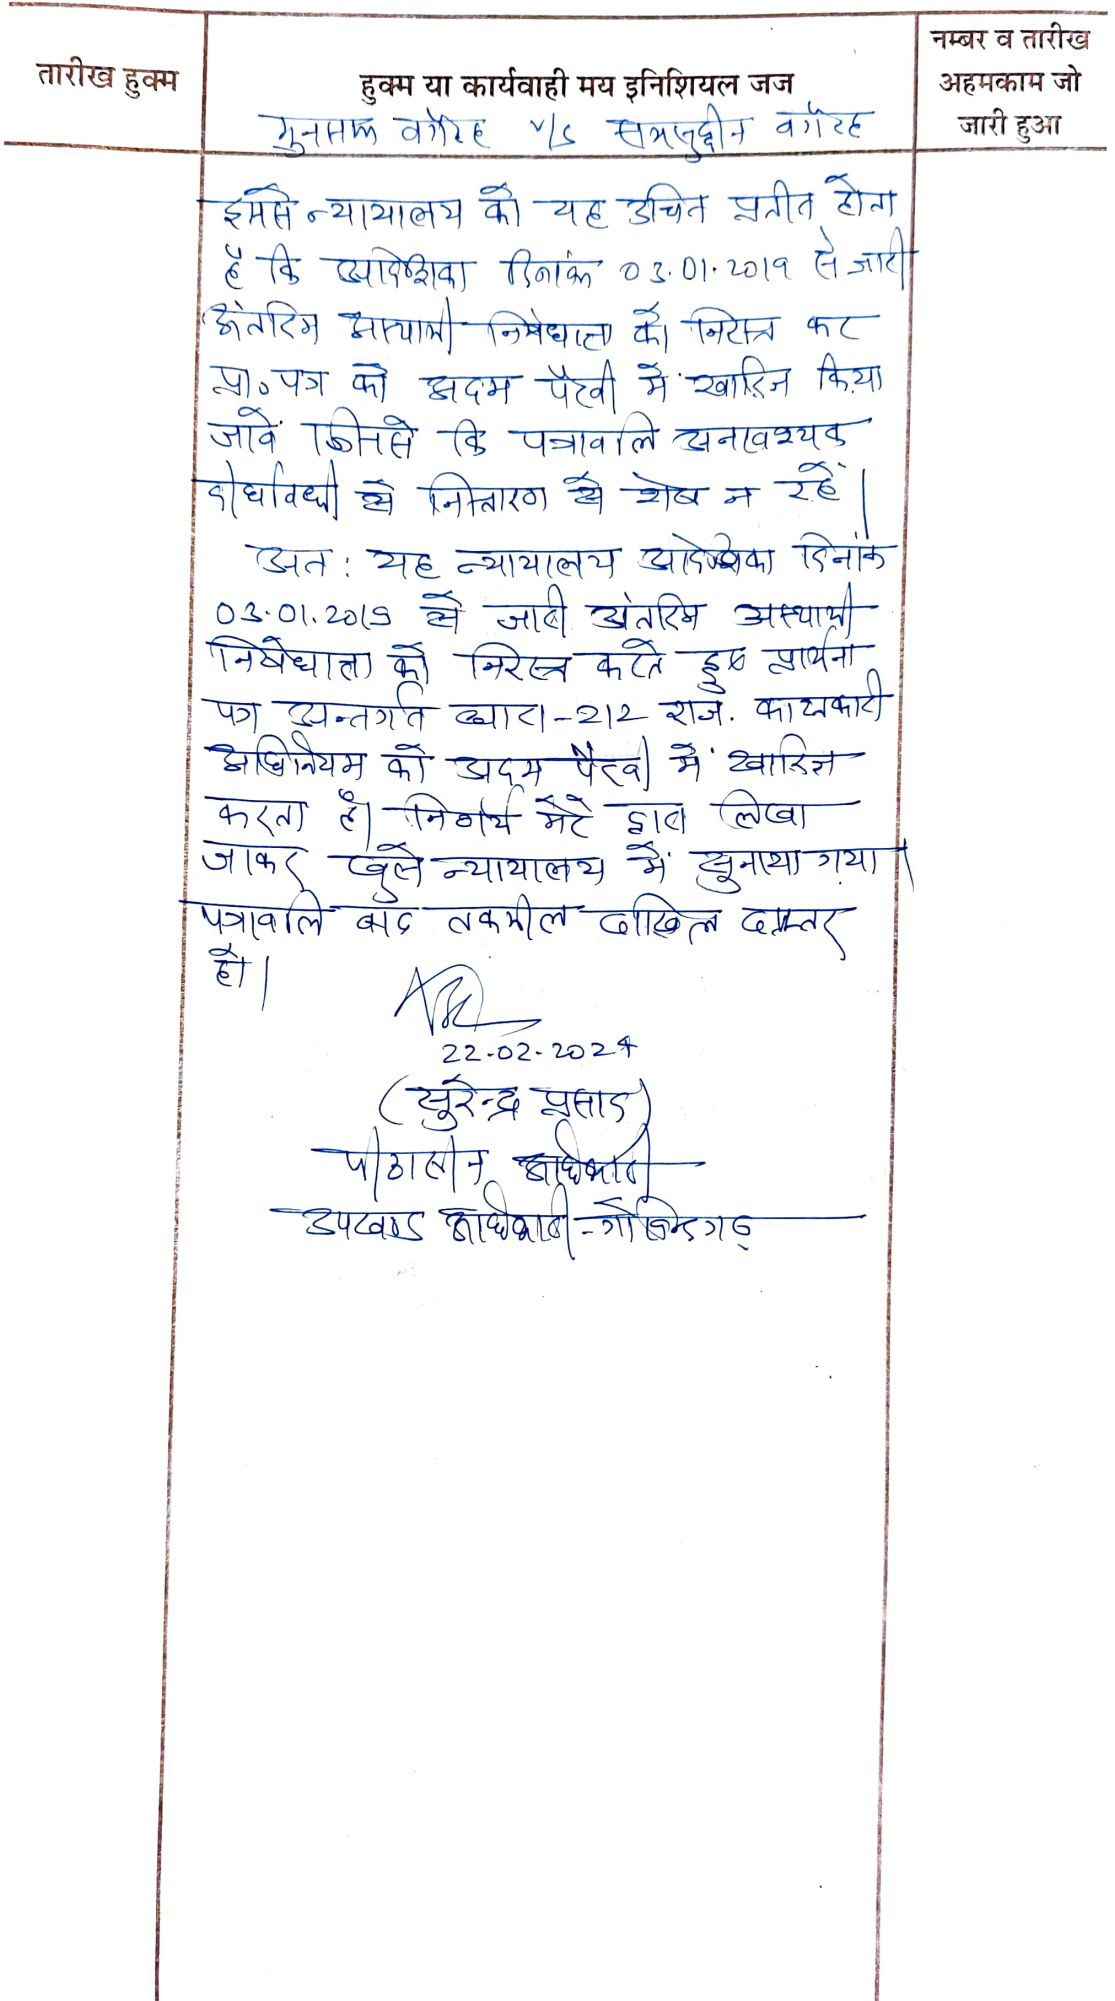 तारीख हुक्म
हुक्म या कार्यवाही मय इनिशियल जज
नम्बर व तारीख
अहमकाम जो
जारी हुआ
वगैरह v/s वगैरह
इससे न्यायालय को यह उचित प्रतीत होता
है कि आदेशिका दिनांक 03.01.2019 से जारी
अंतरिम अस्थायी निषेधाज्ञा को निरस्त कर
प्रा० पत्र को अदम पैरवी में खारिज किया
जावें जिससे कि पत्रावलि अनावश्यक
दीर्घावधी से निस्तारण से शेष न रहें।
अत: यह न्यायालय आदेशिका दिनांक
03.01.2019 से जारी अंतरिम अस्थायी
निषेधाज्ञा को निरस्त करते हुए प्रार्थना
पत्र अन्तर्गत धारा-212 राज. काश्तकारी
अधिनियम को अदम पैरवी में खारिज
करता है। निर्णय मेरे द्वारा लिखा
जाकर खुले न्यायालय में सुनाया गया।
पत्रावलि बाद तकमील दाखिल दफ्तर
हो।
22-02-2024
(सुरेन्द्र प्रसाद)
पीठासीन अधिकारी
उपखण्ड अधिकारी-गोविन्दगढ़